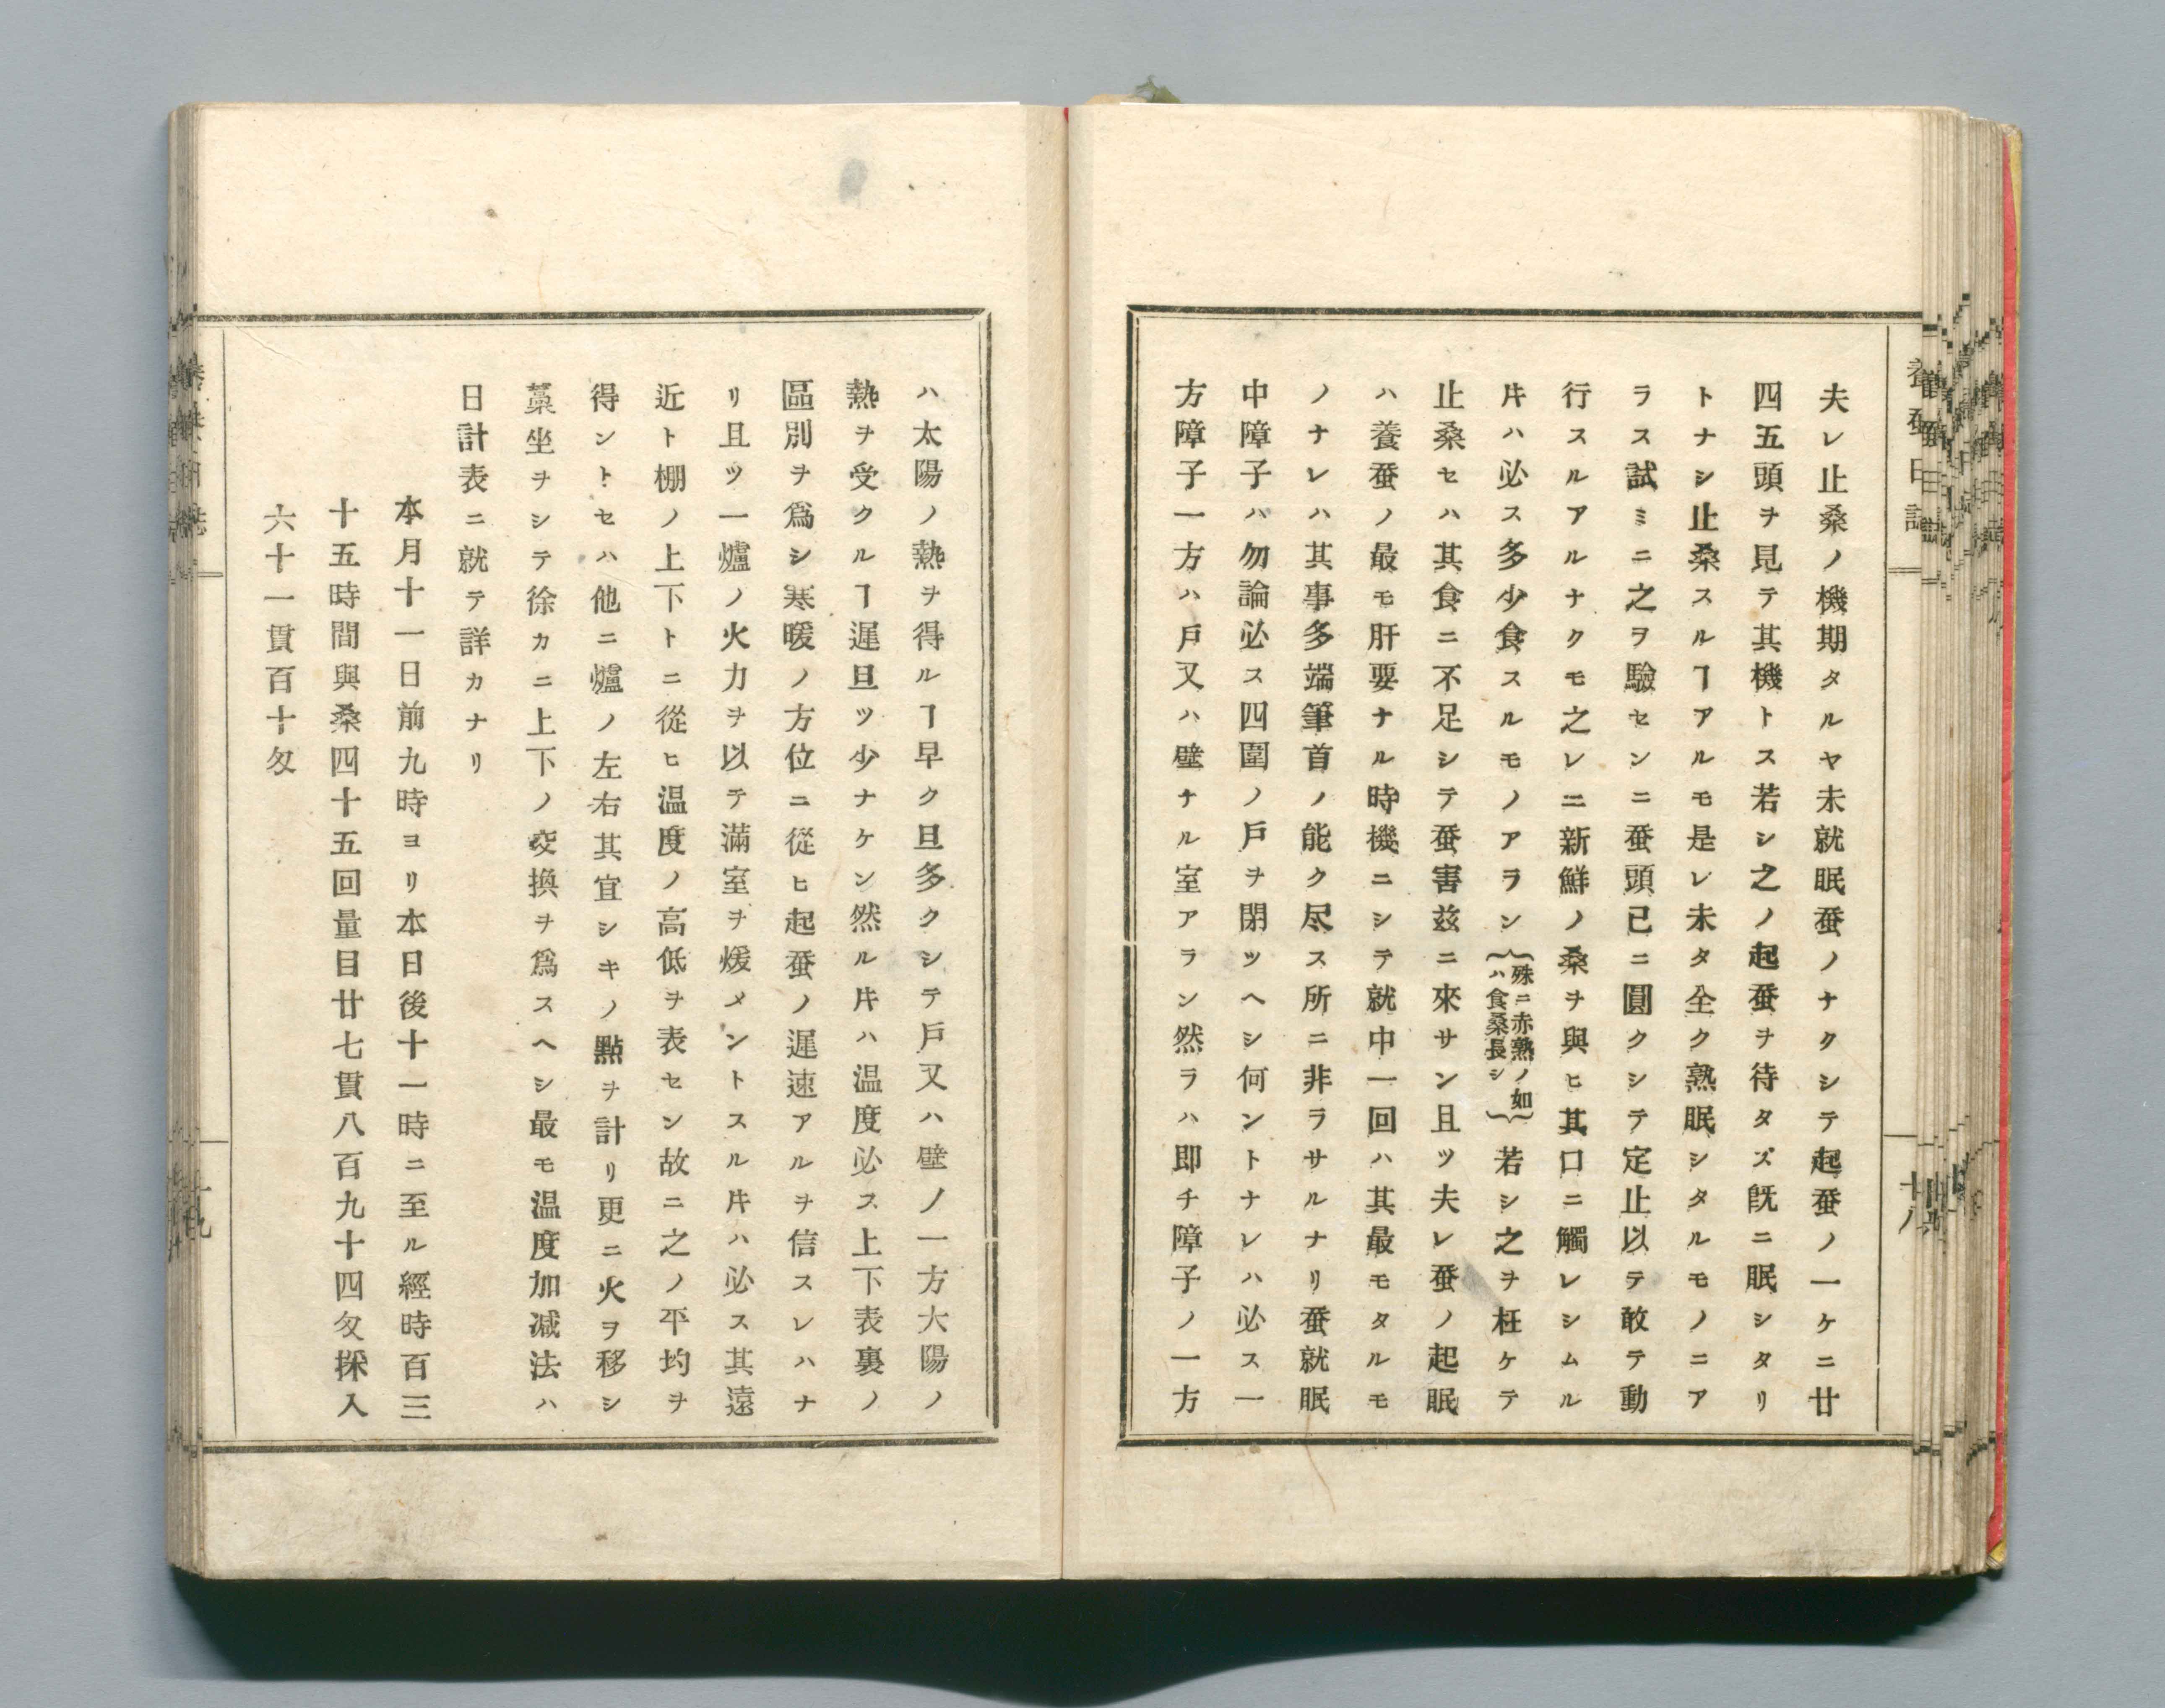 夫レ止桑ノ機期タルヤ未就眠蚕ノナクシテ起蚕ノ一ケニ廿
四五頭ヲ見テ其機トス若シ之ノ起蚕ヲ待タズ既ニ眠シタリ
トナシ止桑スルヿアルモ是レ未タ全ク熟眠シタルモノニア
ラス試ミニ之ヲ驗センニ蚕頭已ニ圓クシテ定止以テ敢テ動
行スルアルナクモ之レニ新鮮ノ桑ヲ與ヒ其口ニ觸レシムル
片ハ必ス多少食スルモノアラン{殊ニ赤熟ノ如ハ食桑長シ}若シ之ヲ枉ケテ
止桑セハ其食ニ不足シテ蚕害玆ニ來サン且ツ夫レ蚕ノ起眠
ハ養蚕ノ最モ肝要ナル時機ニシテ就中一回ハ其最モタルモ
ノナレハ其事多端筆首ノ能ク尽ス所ニ非ラサルナリ蚕就眠
中障子ハ勿論必ス四圍ノ戸ヲ閉ツヘシ何ントナレハ必ス一
方障子一方ハ戸又ハ壁ナル室アラン然ラハ即チ障子ノ一方
ハ太陽ノ熱ヲ得ルヿ早ク旦多クシテ戸又ハ壁ノ一方大陽ノ
熱ヲ受クルヿ遅旦ツ少ナケン然ル片ハ温度必ス上下表裏ノ
區別ヲ爲シ寒暖ノ方位ニ從ヒ起蚕ノ遅速アルヲ信スレハナ
リ且ツ一爐ノ火力ヲ以テ滿室ヲ煖メントスル片ハ必ス其遠
近ト棚ノ上下トニ從ヒ温度ノ高低ヲ表セン故ニ之ノ平均ヲ
得ントセハ他ニ爐ノ左右其宜シキノ點ヲ計リ更ニ火ヲ移シ
藁坐ヲシテ徐カニ上下ノ交換ヲ爲スヘシ最モ温度加減法ハ
日計表ニ就テ詳カナリ
本月十一日前九時ヨリ本日後十一時ニ至ル經時百三
十五時間與桑四十五回量目廿七貫八百九十四匁採入
六十一貫百十匁